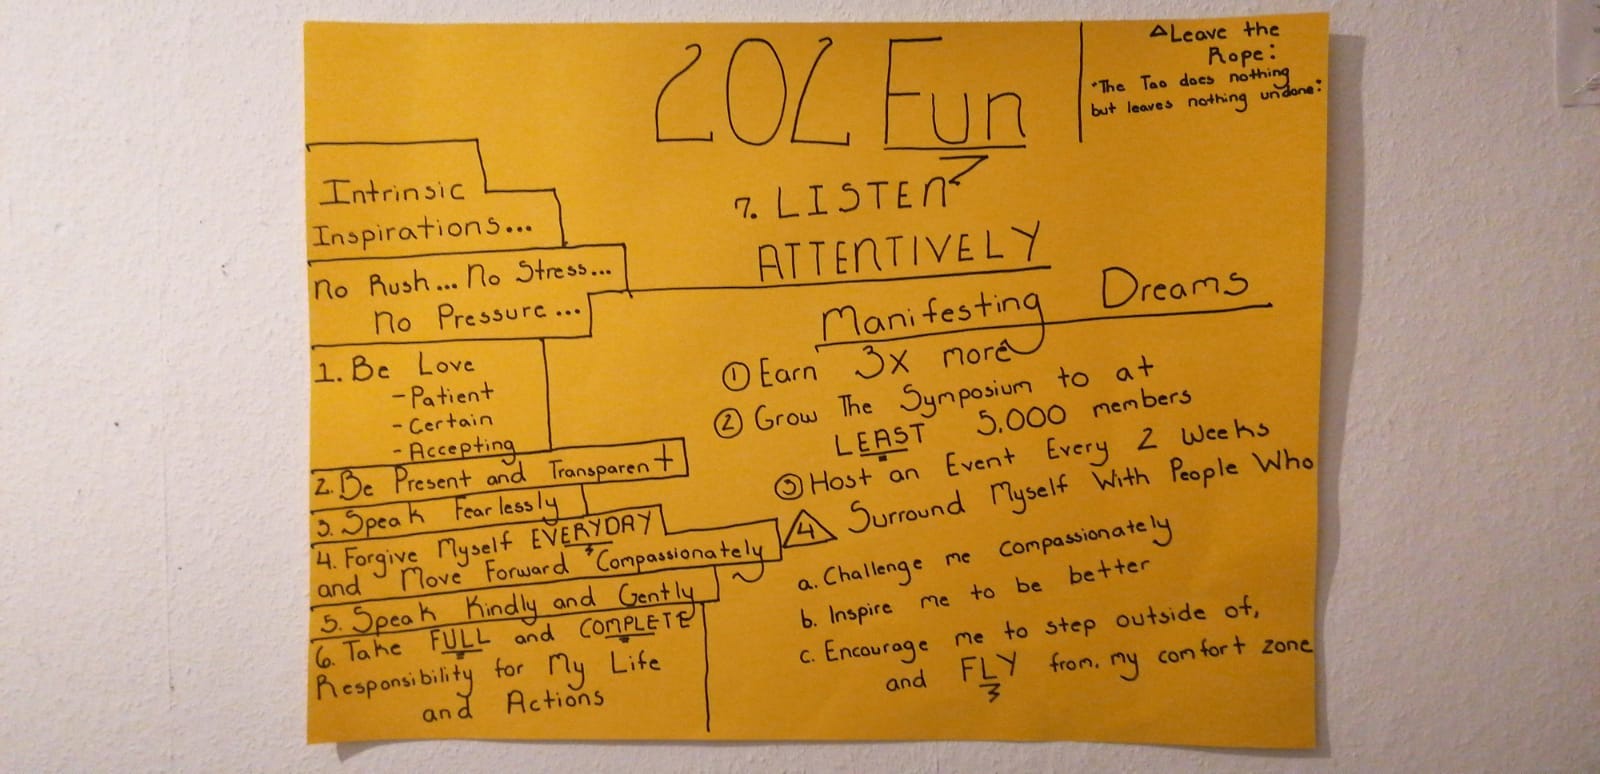 202 Fun
△Leave the
Rope:
"The Tao does nothing
but leaves nothing undone:
Intrinsic
Inspirations...
No Rush... No Stress...
No Pressure...
1. Be Love
- Patient
- Certain
- Accepting
2. Be Present and Transparent
3. Speak Fearlessly
4. Forgive Myself EVERYDAY
and Move Forward Compassionately
5. Speak Kindly and Gently
6. Take FULL and COMPLETE
Responsibility for My Life
and Actions
7. LISTEN
ATTENTIVELY
Manifesting Dreams
① Earn 3x more
② Grow The Symposium to at
LEAST 5.000 members
③ Host an Event Every 2 Weeks
4 Surround Myself With People Who
a. Challenge me compassionately
b. Inspire me to be better
c. Encourage me to step outside of,
and FLY from, my comfort zone